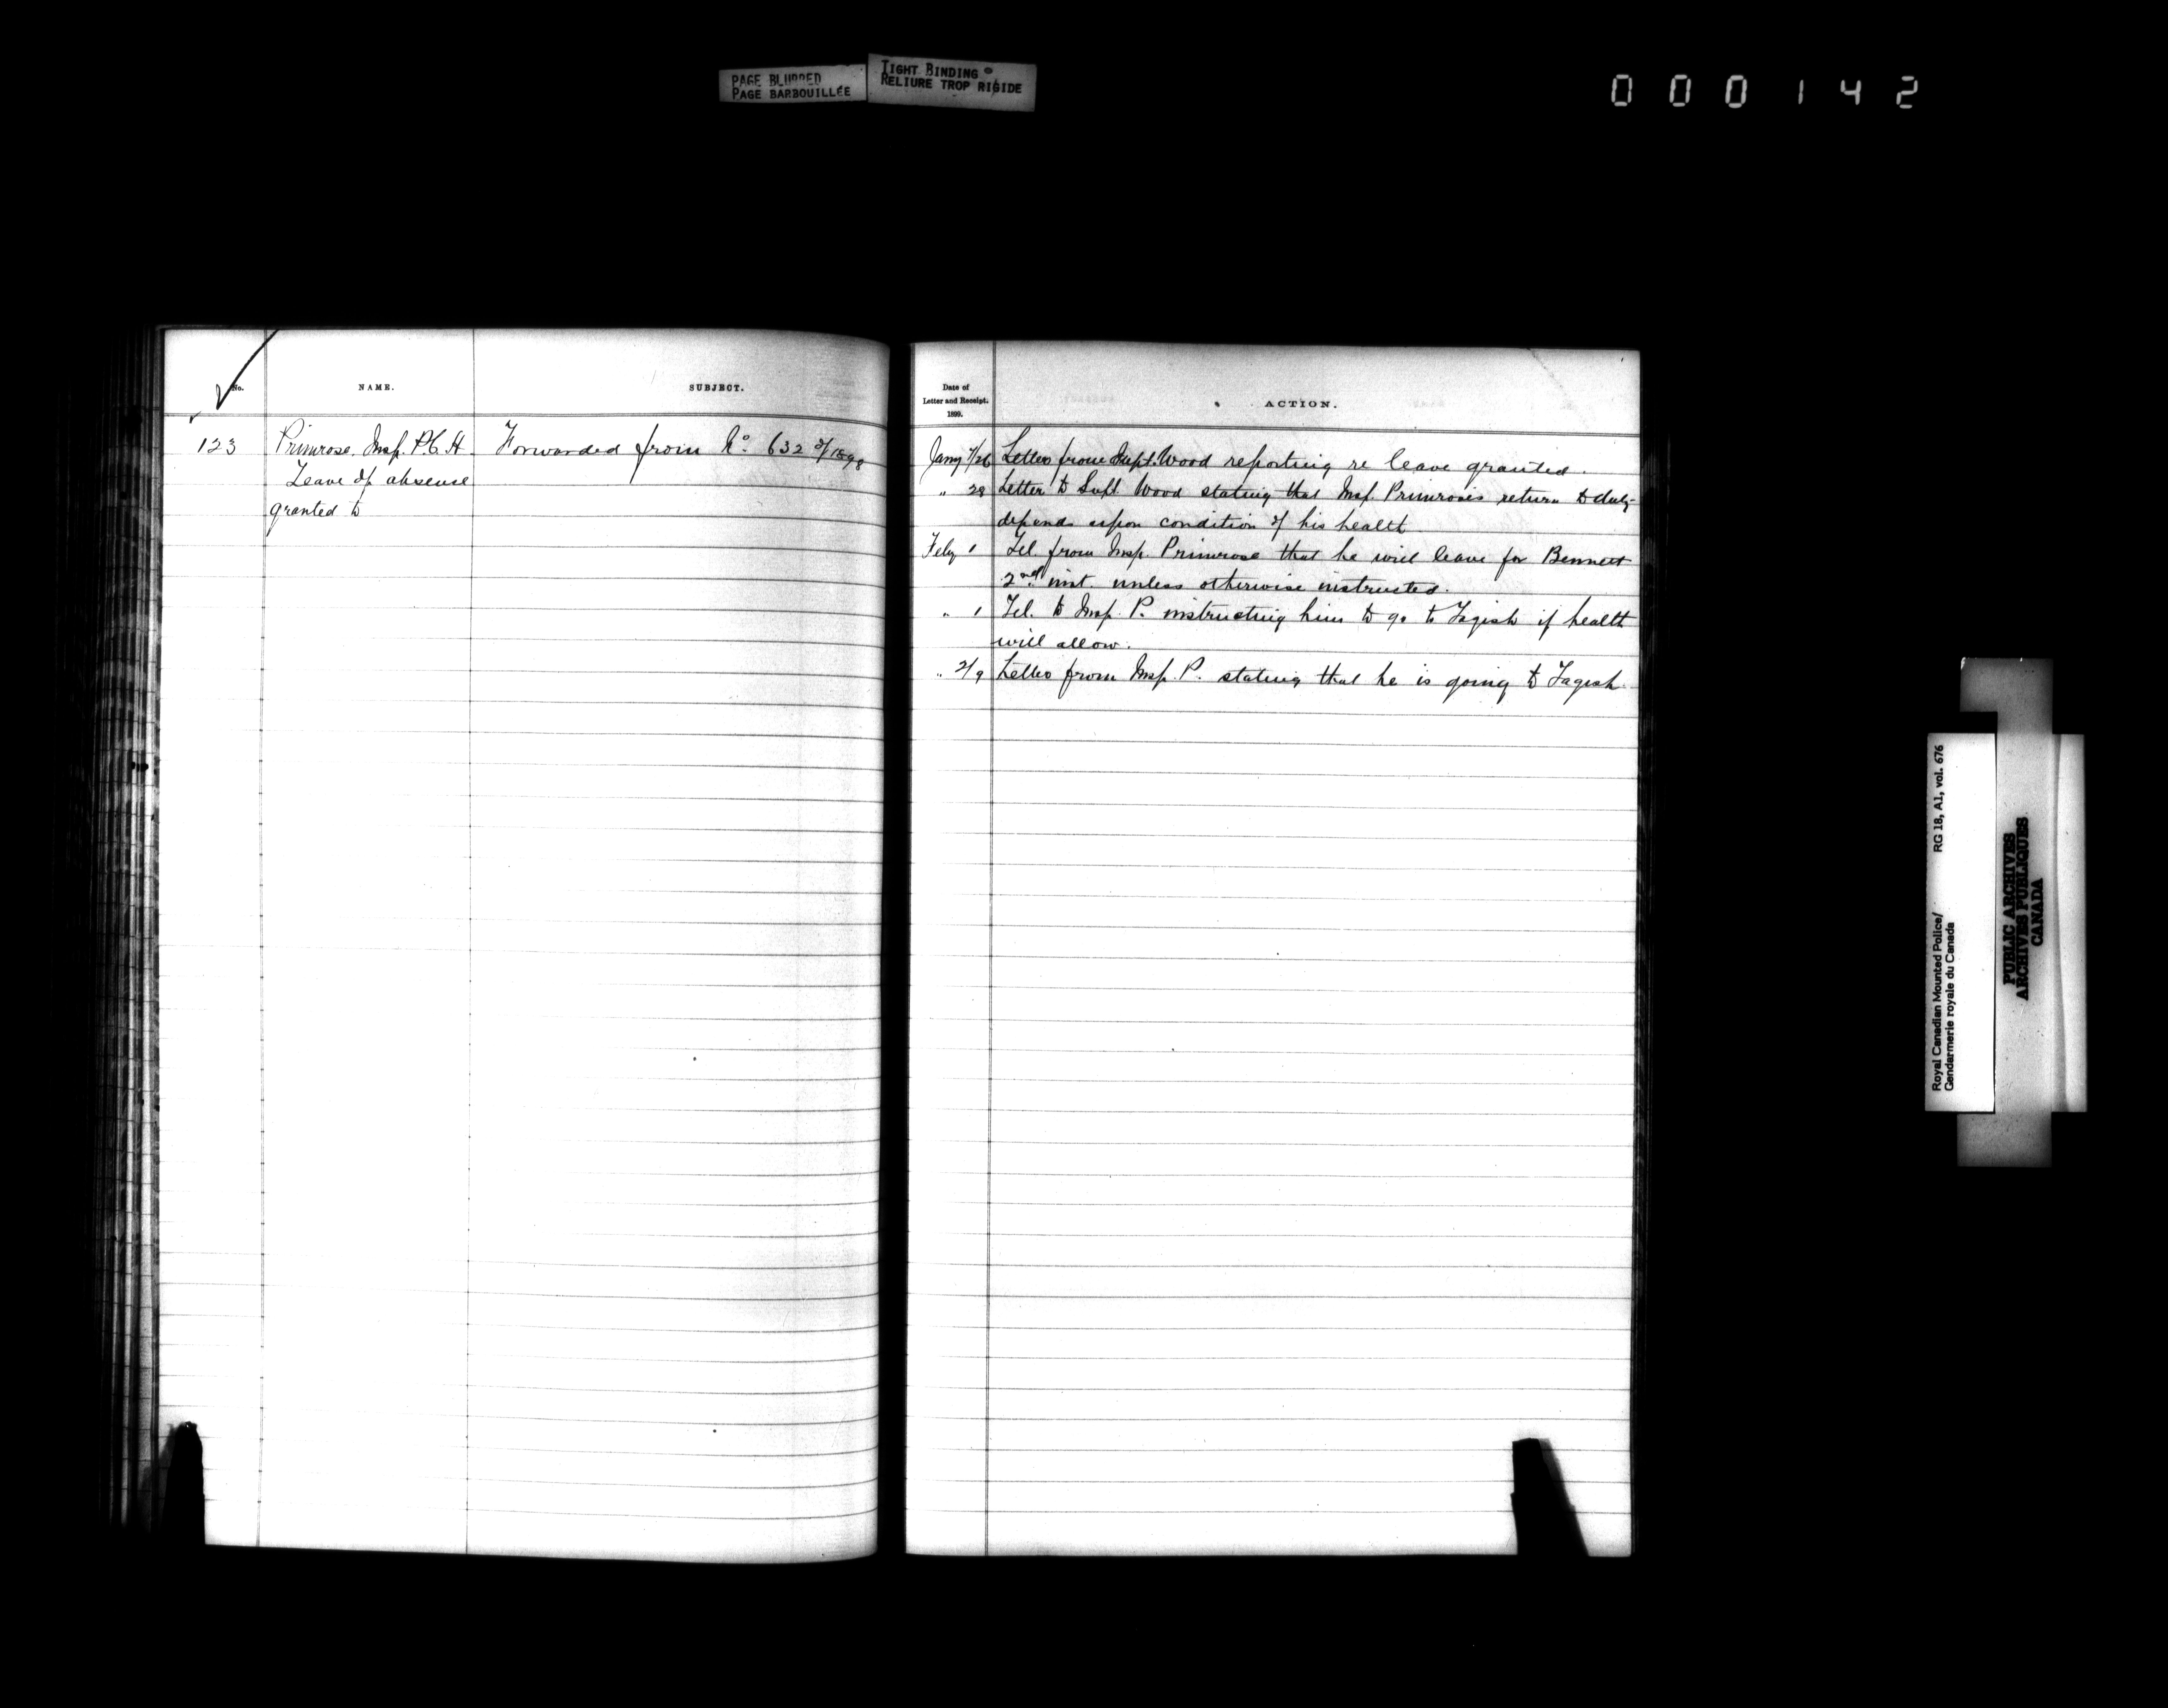 PAGE BLURRED
PAGE BARBOUILLÉE
TIGHT BINDING
RELIURE TROP RIGIDE
000142
No.
NAME.
SUBJECT.
123
Primrose. Insp. P.C.H.
Forwarded from No. 632 of/1898
Leave of absence
granted to
Date of
Letter and Receipt.
1899.
ACTION.
Jany 7/26 Letter from Supt. Wood reporting re leave granted.
" 28 Letter to Supt. Wood stating that Insp. Primrose's return to duty
depends upon condition of his health
Feby 1 Tel. from Insp. Primrose that he will leave for Bennett
2nd inst unless otherwise instructed.
" 1 Tel. to Insp. P. instructing him to go to Tagish if health
will allow.
" 2/9 Letter from Insp. P. stating that he is going to Tagish.
Royal Canadian Mounted Police/
Gendarmerie royale du Canada
RG 18, A1, vol. 676
PUBLIC ARCHIVES
ARCHIVES PUBLIQUES
CANADA